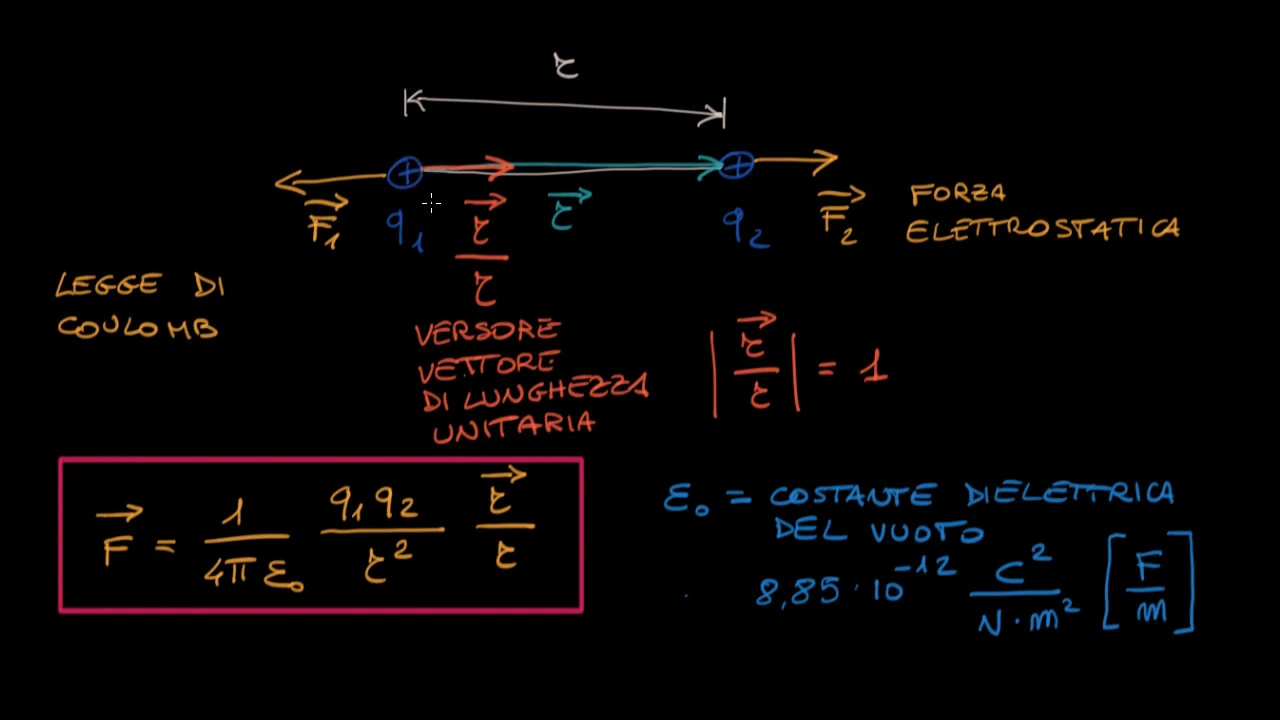 r
F₁ q₁ r/r r q₂ F₂
FORZA
ELETTROSTATICA
LEGGE DI
COULOMB
VERSORE
VETTORE
DI LUNGHEZZA
UNITARIA
|r/r| = 1
F = 1/4πε₀ q₁q₂/r² r/r
ε₀ = COSTANTE DIELETTRICA
DEL VUOTO
8,85 · 10⁻¹² C²/N·m² [F/m]